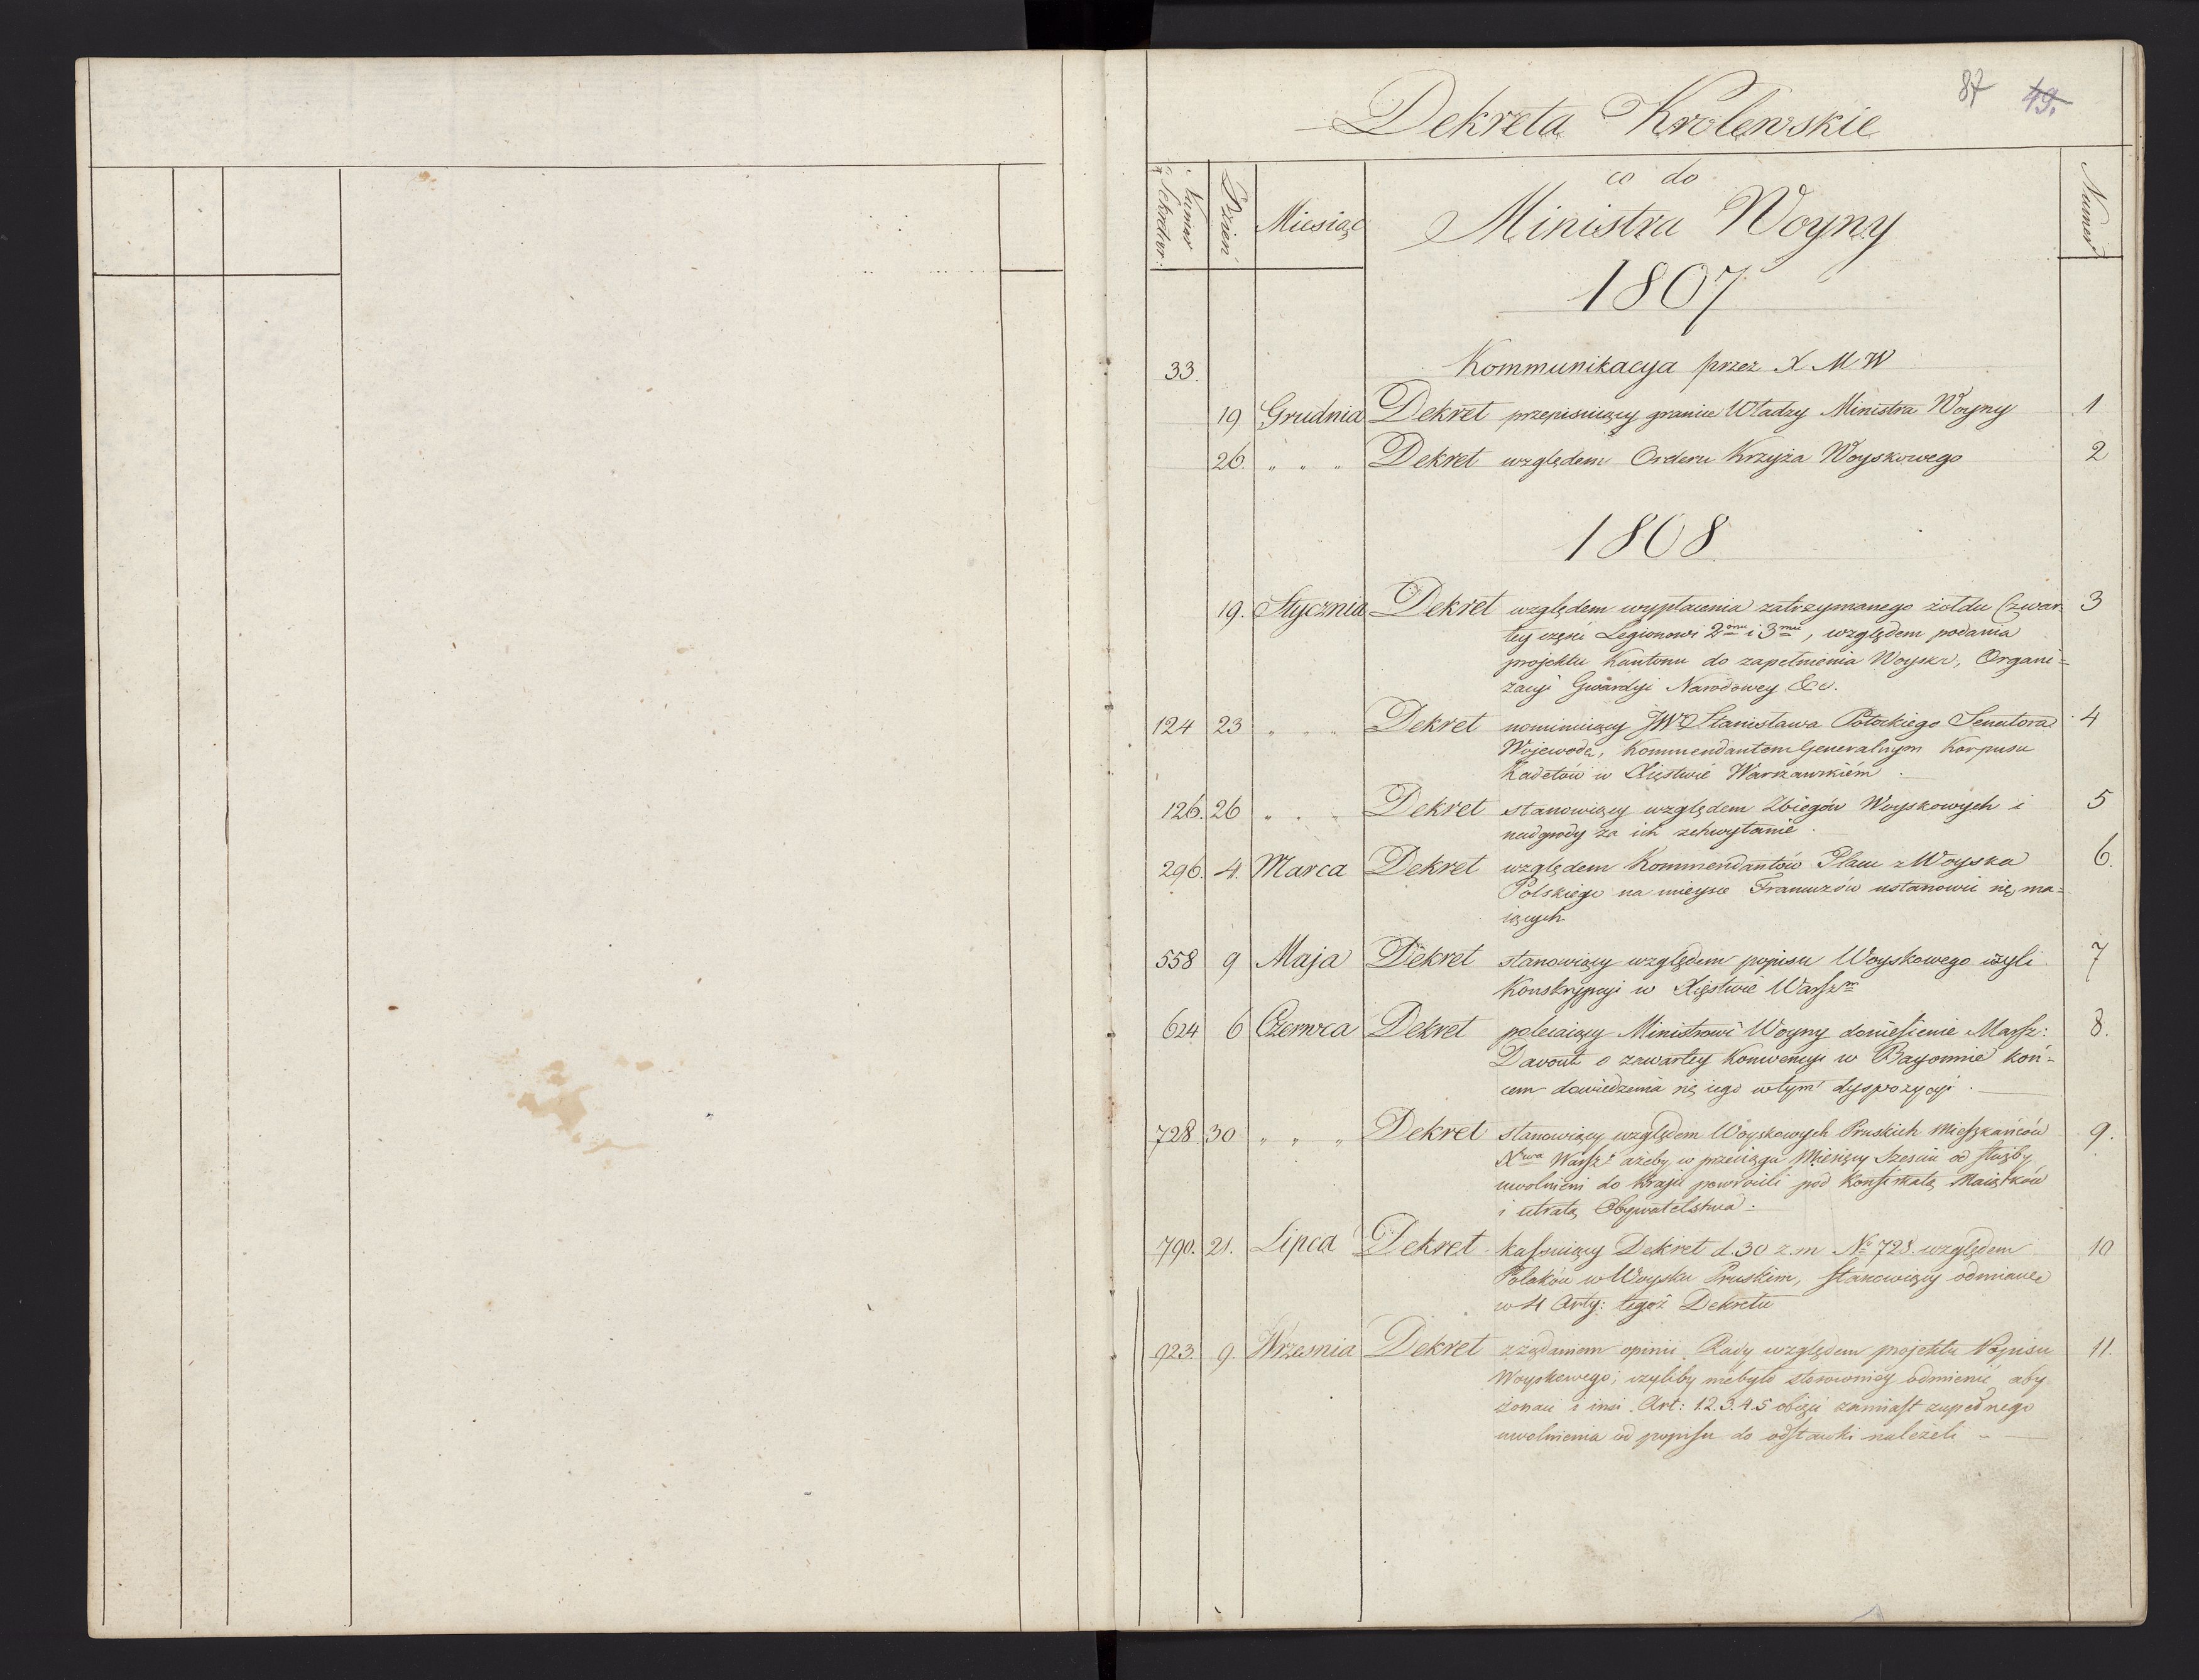 87 49.
Dekreta Krolewskie
Numer z Sekretar: Dzień Miesiąc co do Numer
Ministra Woyny
1807
33. Kommunikacya przez X M W
19 Grudnia Dekret przepisuiący granice Władzy Ministra Woyny 1
26. " " " Dekret względem Orderu Krzyża Woyskowego 2
1808
19. Stycznia Dekret względem wypłacenia zatrzymanego żołdu Czwar- 3
tey części Legionowi 2omu i 3mu, względem podania
projektu Kantonu do zapełnienia Woyska, Organi=
zacyi Gwardyi Narodowey &c.
124 23 " " " Dekret nominuiący JWo Stanisława Potockiego Senatora 4
Wojewodę, Kommendantem Generalnym Korpusu
Kadetów w Xięstwie Warszawskiém
126. 26 " " " Dekret stanowiący względem Zbiegów Woyskowych i 5
nadgrody za ich schwytanie.
296. 4. Marca Dekret względem Kommendantów Placu z Woyska 6.
Polskiego na mieysce Francuzów ustanowić się ma=
iących
558 9 Maja Dekret stanowiący względem popisu Woyskowego czyli 7
Konskrypcyi w Xięstwie Warszm
624 6 Czerwca Dekret polecaiący Ministrowi Woyny doniesienie Marsz: 8.
Davout o zawartey Konwencyi w Bayonnie koń=
cem dowiedzenia się iego w tym dyspozycyi.
728. 30 " " " Dekret stanowiący względem Woyskowych Pruskich Mieszkańców 9.
Xtwa Warsz: ażeby w przeciągu Miesięcy Sześciu od służby
uwolnieni do Kraju powrócili pod Konfiskatą Maiątków
i utratą Obywatelstwa.
790. 21. Lipca Dekret kassuiący Dekret d. 30 z.m No 728. względem 10
Polaków w Woysku Pruskim, stanowiący odmianę
w 4 Arty: tegoż Dekretu
923. 9. Wrzesnia Dekret z żądaniem opinii Rady względem projektu Popisu 11.
Woyskowego; czyliby niebyło stosowniey odmienić aby
żonaci i inni Art: 1.2.3.4.5 obięci zamiast zupełnego
uwolnienia od popisu do odstawki należeli